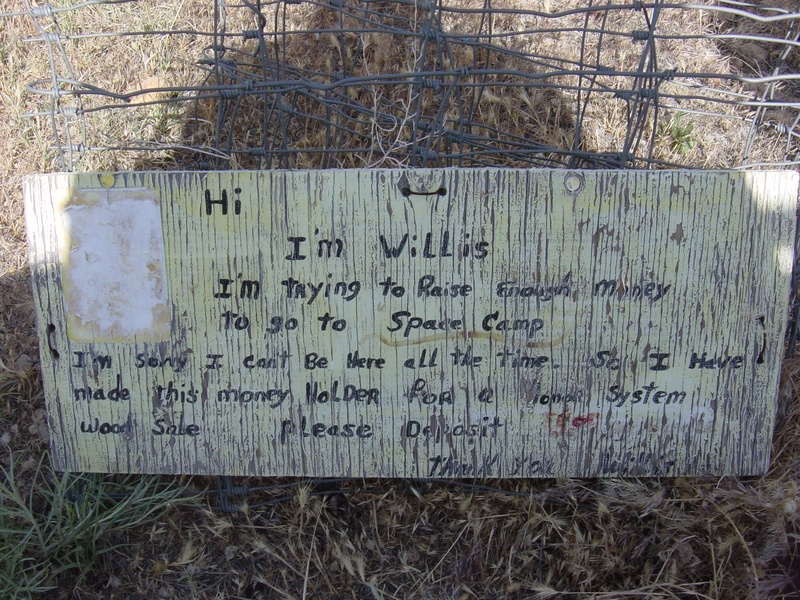 Hi
I'm Willis
I'm trying to Raise Enough money
to go to Space Camp
I'm sorry I can't Be Here all the time. So I Have
made this money HolDER foR a System
wood Sale please Deposit
Thank You Willis